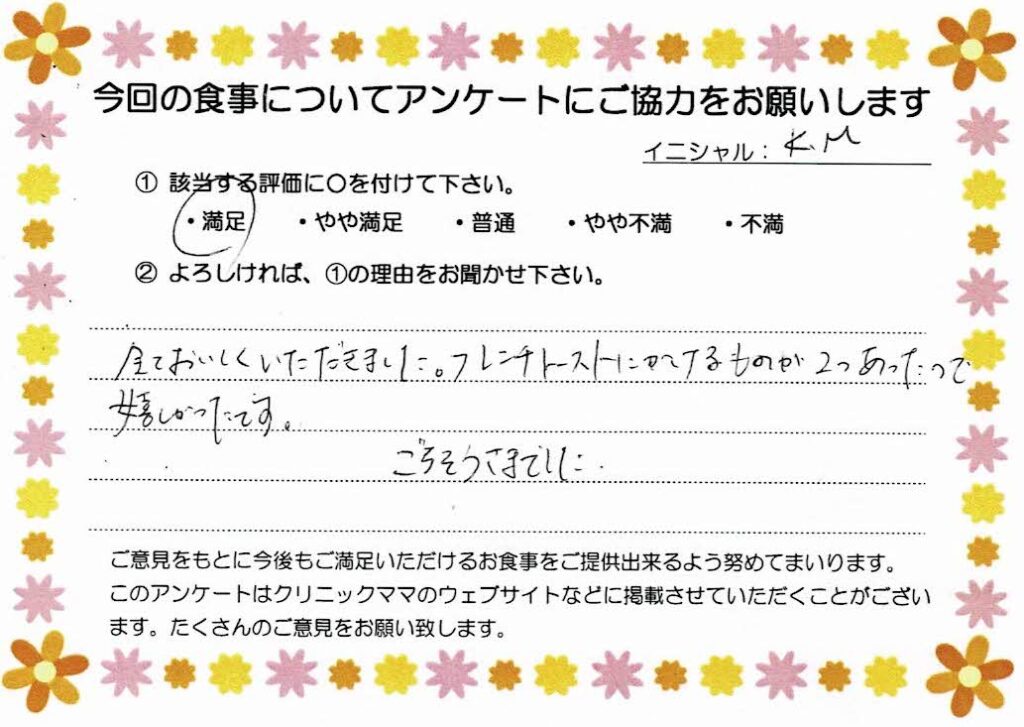 今回の食事についてアンケートにご協力をお願いします
イニシャル： K.M
① 該当する評価に〇を付けて下さい。
・満足 ・やや満足 ・普通 ・やや不満 ・不満
② よろしければ、①の理由をお聞かせ下さい。
全ておいしくいただきました。フレンチトーストにかけるものが2つあったので
嬉しかったです。
ごちそうさまでした.
ご意見をもとに今後もご満足いただけるお食事をご提供出来るよう努めてまいります。
このアンケートはクリニックママのウェブサイトなどに掲載させていただくことがござい
ます。たくさんのご意見をお願い致します。